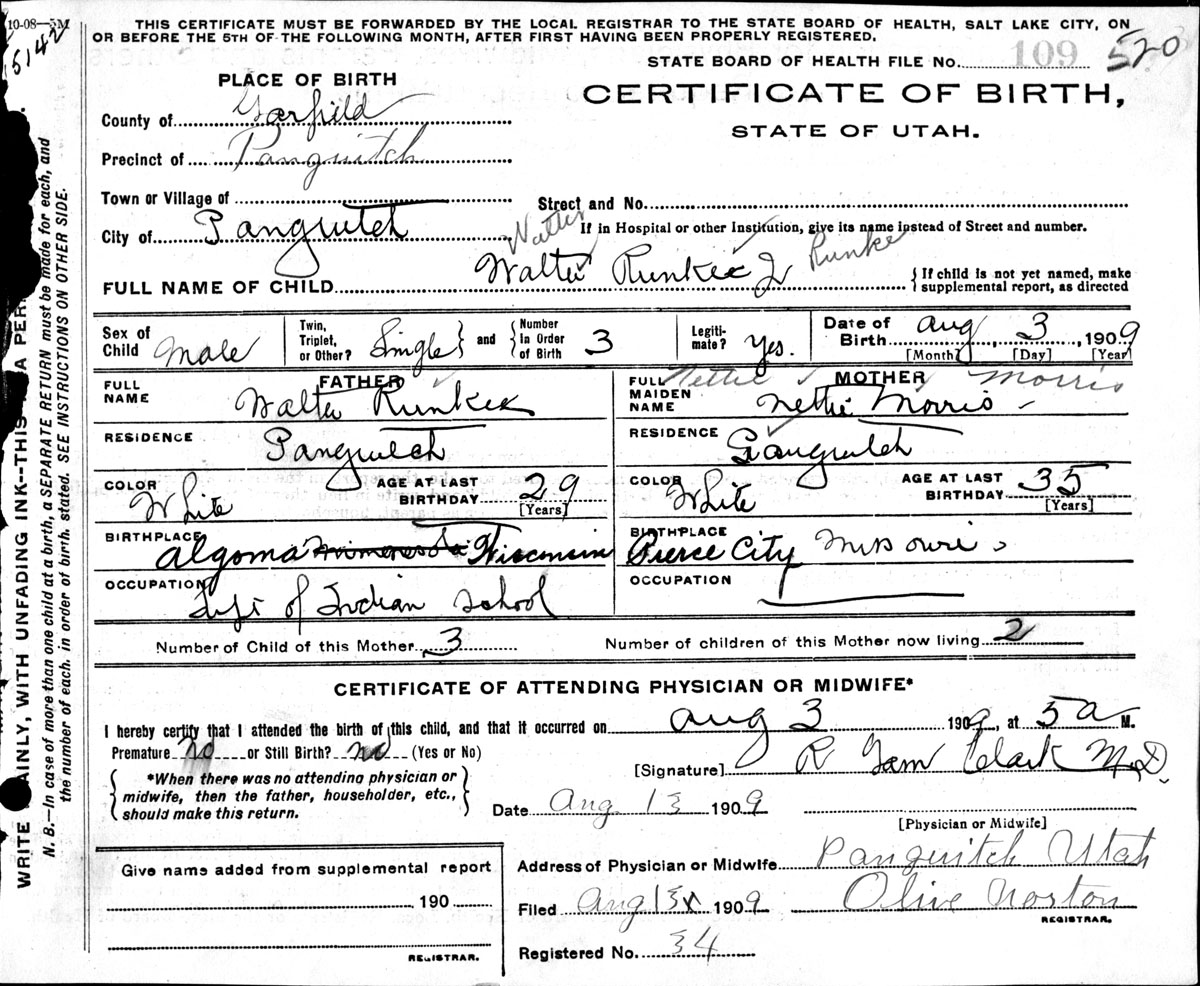 10-08—5M
5142
THIS CERTIFICATE MUST BE FORWARDED BY THE LOCAL REGISTRAR TO THE STATE BOARD OF HEALTH, SALT LAKE CITY, ON
OR BEFORE THE 5TH OF THE FOLLOWING MONTH, AFTER FIRST HAVING BEEN PROPERLY REGISTERED.
STATE BOARD OF HEALTH FILE No. 109 520
PLACE OF BIRTH
CERTIFICATE OF BIRTH,
STATE OF UTAH.
County of Garfield
Precinct of Panguitch
Town or Village of
Street and No.
City of Panguitch
If in Hospital or other Institution, give its name instead of Street and number.
Walter Runke
FULL NAME OF CHILD Walter Runke Jr
{If child is not yet named, make
supplemental report, as directed
Sex of Child Male
Twin, Triplet, or Other? Single } and { Number In Order of Birth 3
Legiti-mate? Yes.
Date of Birth Aug 3, 1909
[Month] [Day] [Year]
FATHER
FULL NAME Walter Runke
RESIDENCE Panguitch
COLOR White AGE AT LAST BIRTHDAY 29 [Years]
BIRTHPLACE Algoma Minnesota Wisconsin
OCCUPATION of Indian School
MOTHER
Nettie Morris
FULL MAIDEN NAME Nettie Morris
RESIDENCE Panguitch
COLOR White AGE AT LAST BIRTHDAY 35 [Years]
BIRTHPLACE Pierce City Missouri
OCCUPATION
Number of Child of this Mother 3 Number of children of this Mother now living 2
CERTIFICATE OF ATTENDING PHYSICIAN OR MIDWIFE*
I hereby certify that I attended the birth of this child, and that it occurred on Aug 3 1909, at 5 a M.
Premature No or Still Birth? no (Yes or No)
[Signature] R Gam Clark M.D.
*When there was no attending physician or
midwife, then the father, householder, etc.,
should make this return.
Date Aug 13 1909
[Physician or Midwife]
Address of Physician or Midwife Panguitch Utah
Filed Aug 13 1909 Olive Norton
REGISTRAR.
Registered No. 34
Give name added from supplemental report
190
REGISTRAR.
WRITE PLAINLY, WITH UNFADING INK--THIS IS A PER
N. B.—In case of more than one child at a birth, a SEPARATE RETURN must be made for each, and
the number of each, in order of birth, stated. SEE INSTRUCTIONS ON OTHER SIDE.